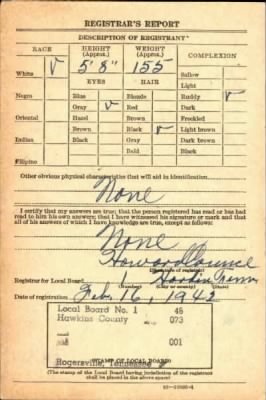 REGISTRAR'S REPORT
DESCRIPTION OF REGISTRANT
RACE HEIGHT (Approx.) WEIGHT (Approx.) COMPLEXION
White V 5' 8" 155 Sallow
EYES HAIR Light
Negro Blue Blonde Ruddy V
Gray V Red Dark
Oriental Hazel Brown Freckled
Brown Black V Light brown
Indian Black Gray Dark brown
Bald Black
Filipino
Other obvious physical characteristics that will aid in identification
None
I certify that my answers are true; that the person registered has read or has had
read to him his own answers; that I have witnessed his signature or mark and that
all of his answers of which I have knowledge are true, except as follows:
None
Howard
(Signature of registrar)
Registrar for Local Board
Date of registration Feb. 16, 1942
Local Board No. 1 45
Hawkins County 073
001
Rogersville, Tennessee
(STAMP OF LOCAL BOARD)
(The stamp of the Local Board having jurisdiction of the registrant
shall be placed in the above space)